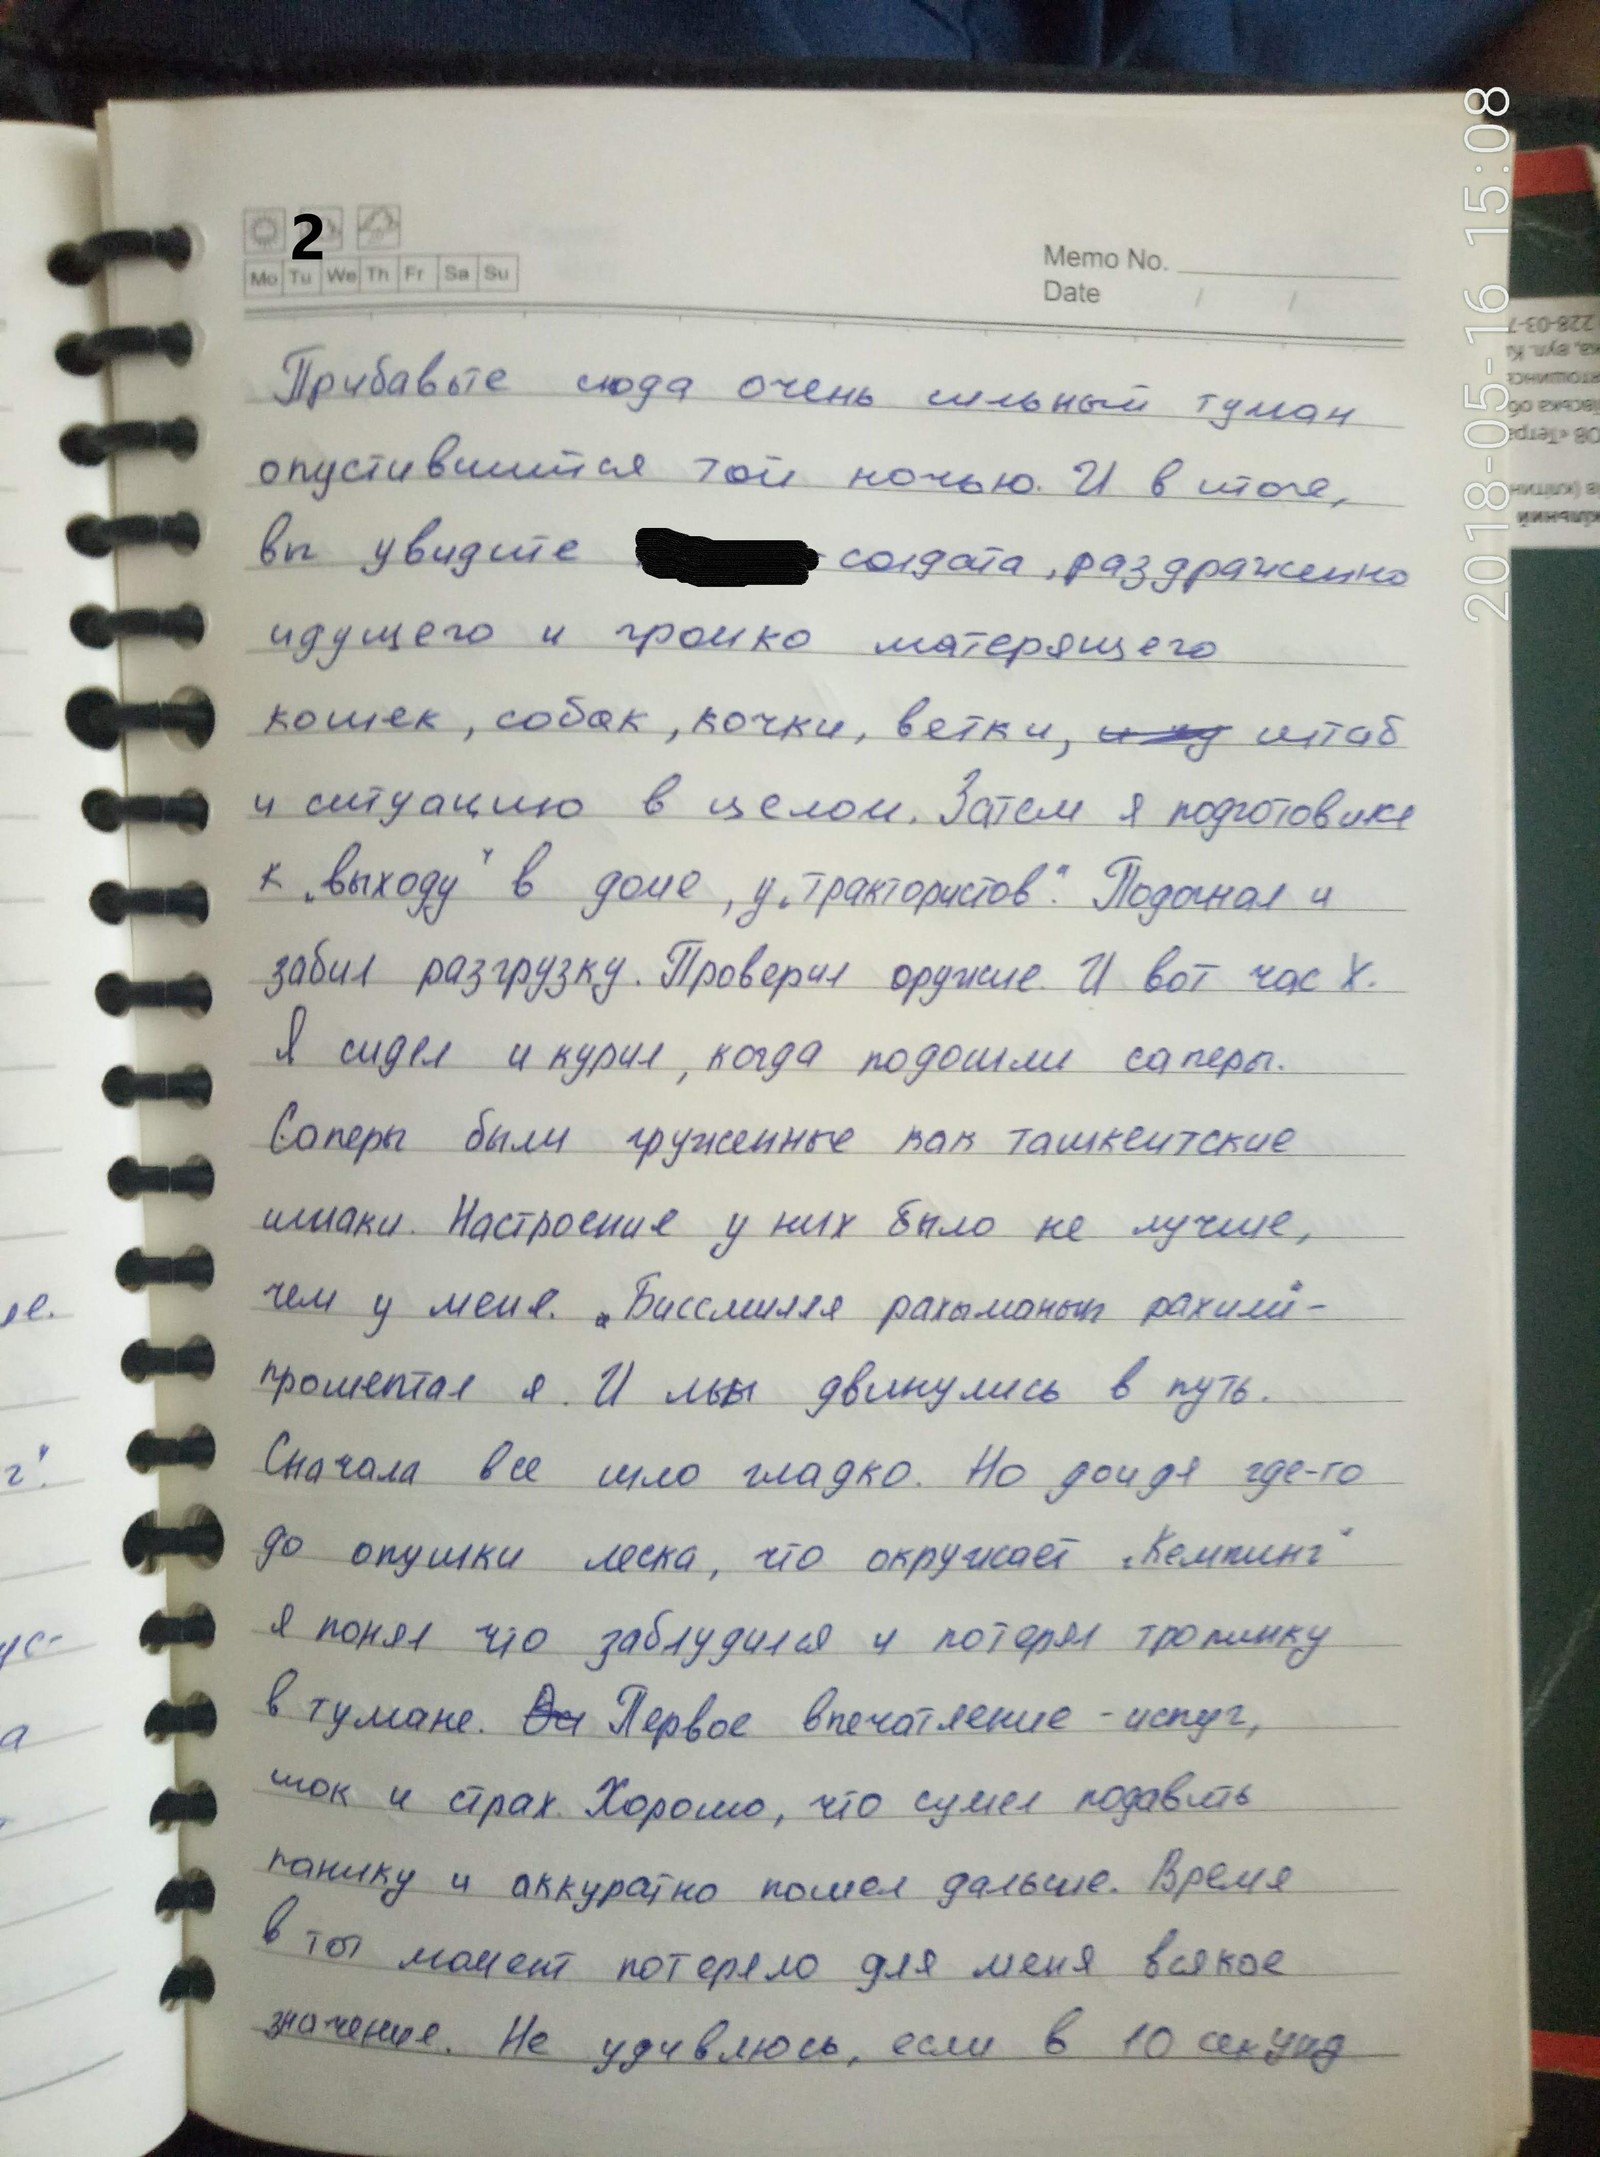 2
Mo Tu We Th Fr Sa Su
Memo No.
Date / /
2018-05-16 15:08
Прибавьте сюда очень сильный туман
опустившийся той ночью. И в итоге,
вы увидите солдата, раздраженно
идущего и громко матерящего
кошек, собак, кочки, ветки, штаб
и ситуацию в целом. Затем я подготовился
к „выходу“ в доме, у „трактористов“. Подогнал и
забил разгрузку. Проверил оружие. И вот час X.
Я сидел и курил, когда подошли саперы.
Саперы были груженные как ташкентские
ишаки. Настроение у них было не лучше,
чем у меня. „Биссмилля рахьманьи рахим“-
прошептал я. И мы двинулись в путь.
Сначала все шло гладко. Но дойдя где-то
до опушки леска, что окружает „Кемпинг“
я понял что заблудился и потерял тропинку
в тумане. Первое впечатление - испуг,
шок и страх. Хорошо, что сумел подавить
панику и аккуратно пошел дальше. Время
в тот момент потеряло для меня всякое
значение. Не удивлюсь, если в 10 секунд
ле.
г“.
ус-
а
228-03-7
ка, вул. Ка
ївська об
ОВ «Тетра